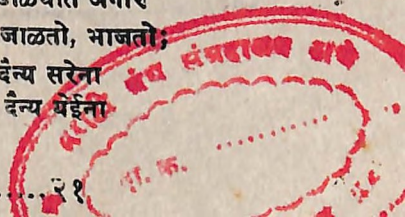 जाळतो, भाजतो;
दैन्य सरेना
दैन्य येईना
.....२१
मराठी ग्रंथ संग्रहालय ठाणे
दा. क. ............